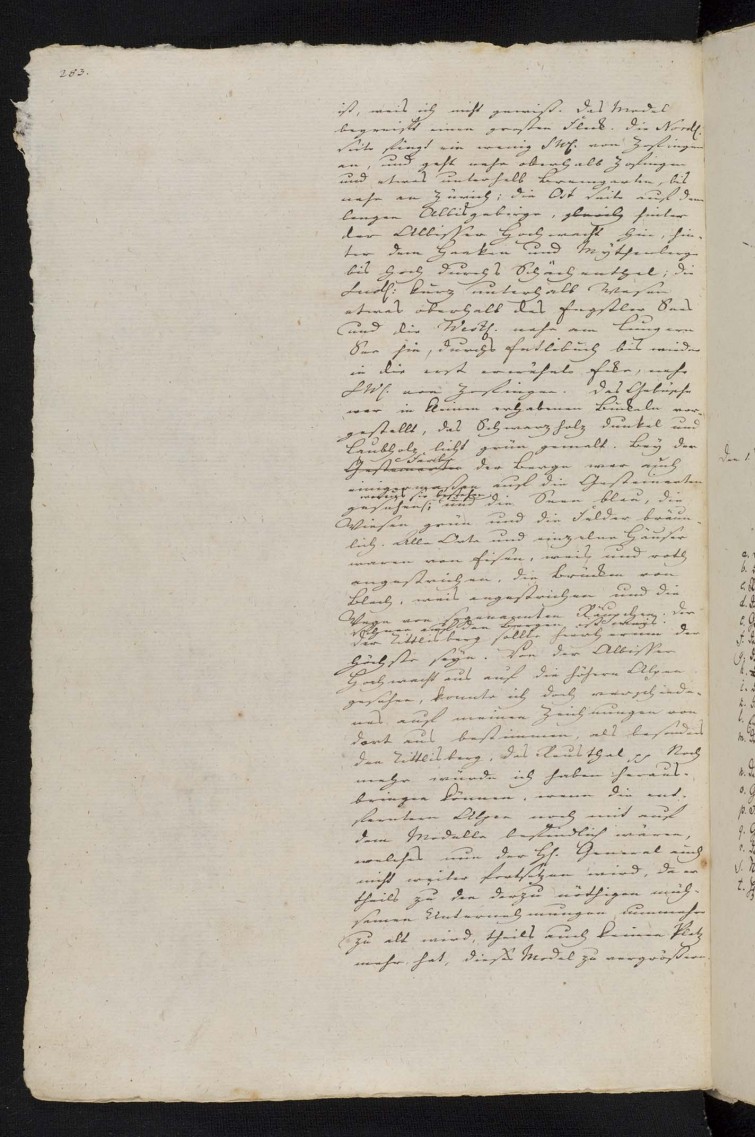 283.
ist, weis ich nicht gewiss. Das Model
begreift einen grossen Fleck. Die Nordl.
Seite fängt ein wenig SW. von Zofingen
an, und geht nahe oberhalb Zofingen
und etwas unterhalb Bremgarten, bis
nahe an Zürich; die Ost Seite auf dem
langen Albisgebirge, gleich hinter
der Albisser Hochwacht hin, hin-
ter dem Haaken und Mythenberge
bis hoch durchs Schächenthal; die
Südl: kurz unterhalb Wasen
etwas oberhalb des Engstler Sees
und die Westl. nahe am Lungern
See hin, durchs Entlibuch bis wieder
in die erst erwähnte Ecke, nahe
SW. von Zofingen. Das Gebüsche
war in kleinen erhabenen Buckeln vor-
gestellt, das Schwarzholz dunkel und
Laubholz licht grün gemalt. Bey der
Farbe
der Berge war auch
einigermassen auf die Gesteinarten
woraus sie bestehen
gesehen; und die Seen blau, die
Wiesen grün und die Felder bräun-
lich. Alle Orte und einzelne Häuser
waren von Eisen, weis und roth
angestrichen, die Brücken von
Blech, weis angestrichen und die
Wege von sogenannten Räupchen. Der
Schnee auf den Bergen
der Tittlisberg sollte hierherum der
höchste seyn. Von der Albisser
Hochwacht aus auf die höhern Alpen
gesehen, konnte ich doch verschiede-
nes auf meinen Zeichnungen von
dort aus bestimmen, als besonders
den Tittlisberg, das Reusthal pp Noch
mehr würde ich haben heraus-
bringen können, wenn die ent-
ferntern Alpen noch mit auf
dem Modelle befindlich wären,
welches nun der H. General auch
nicht weiter fortsetzen wird, da er
theils zu den darzu nöthigen müh-
samen Unternehmungen nunmehr
zu alt wird, theils auch keinen Platz
mehr hat, dieses Model zu vergrössern.